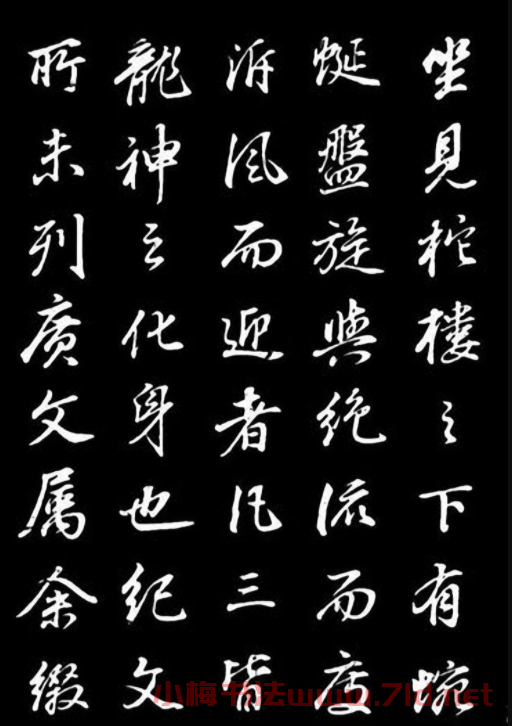 坐見柁樓之下有蜿
蜒盤旋與絶流而度
泝風而迎者凡三皆
龍神之化身也紀文
所未列廣文属余綴
小梅书法www.71d.net